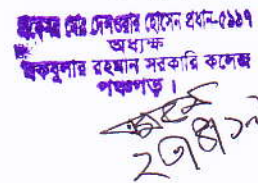 প্রফেসর মোঃ দেলওয়ার হোসেন প্রধান-৫১১৭
অধ্যক্ষ
মকবুলার রহমান সরকারি কলেজ
পঞ্চগড়।